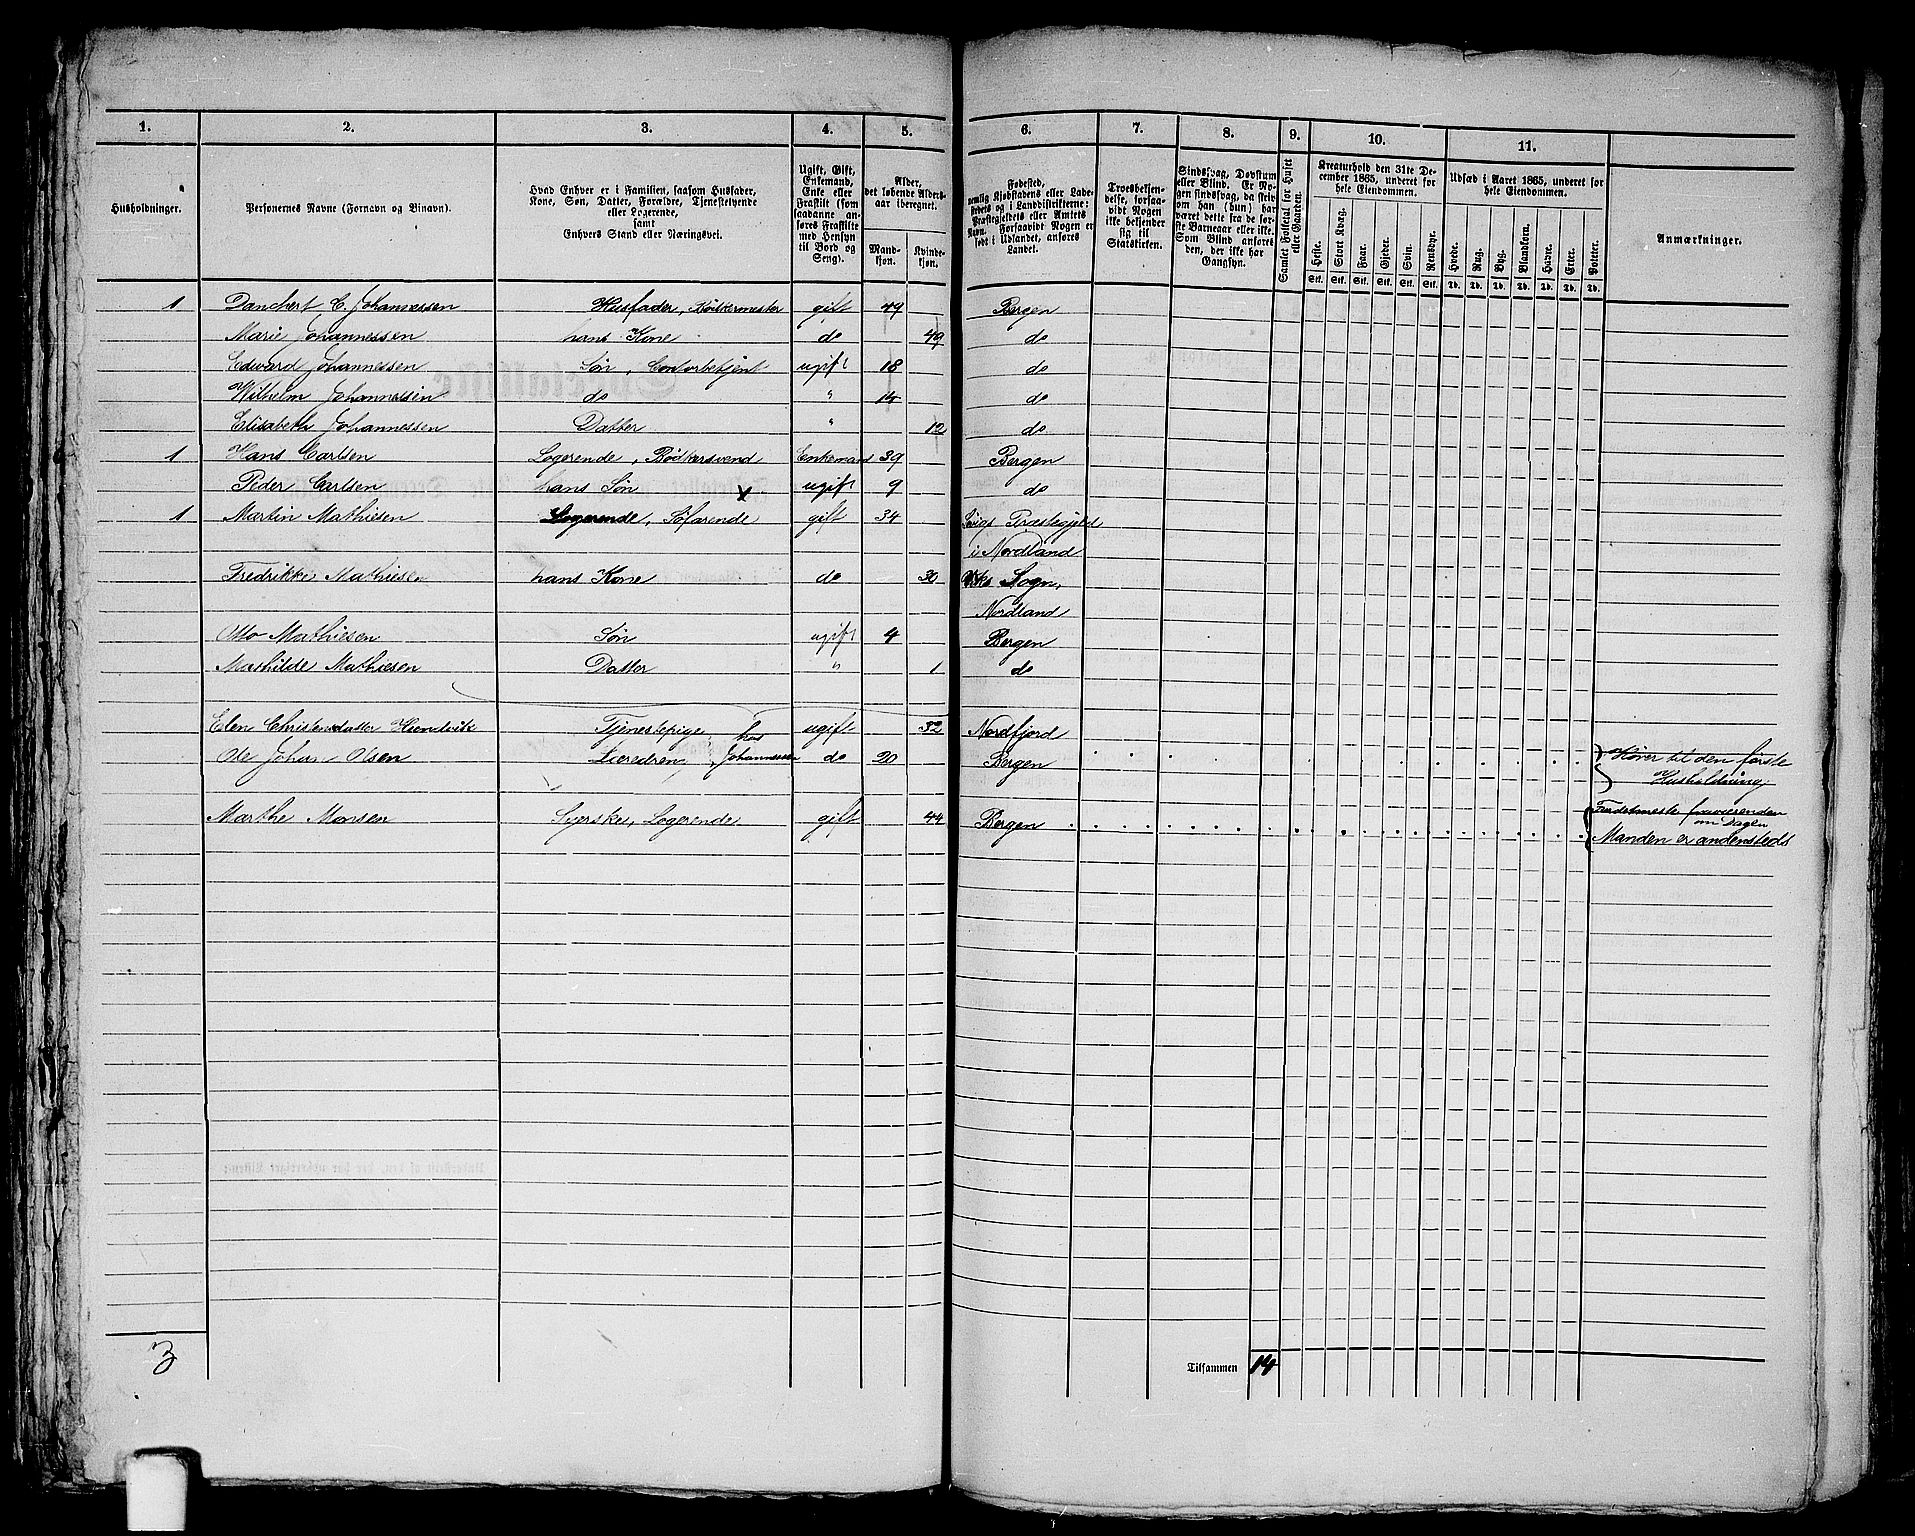 1. 2. 3. 4. 5. 6. 7. 8. 9. 10. 11.
Husholdninger.
Personernes Navne (Fornavn og Binavn).
Hvad Enhver er i Familien, saasom Husfader,
Kone, Søn, Datter, Forældre, Tjenestetyende
eller Logerende,
samt
Enhvers Stand eller Næringsvei.
Ugift, Gift,
Enkemand,
Enke eller
Fraskilt (som
saadanne an-
føres Fraskilte
med Hensyn
til Bord og
Seng).
Alder,
det løbende Alders-
aar iberegnet.
Mand-
kjøn.
Kvinde-
kjøn.
Fødested,
nemlig Kjøbstadens eller Lade-
stedets og i Landdistrikterne:
Præstegjeldets eller Amtets
Navn. Forsaavidt Nogen er
født i Udlandet, anføres
Landet.
Troesbekjen-
delse, forsaa-
vidt Nogen
ikke bekjender
sig til
Statskirken.
Sindssvag, Døvstum
eller Blind. Er No-
gen sindssvag, da skriv
om han (hun) har
været dette fra de før-
ste Barneaar eller ikke.
Som Blind anføres
den, der ikke har
Gangsyn.
Samlet Folketal for Huset
eller Gaarden.
Kreaturhold den 31te De-
cember 1865, underet for
hele Eiendommen.
Heste. Stort Kvæg. Faar. Gjeder. Svin. Rensdyr.
Stk. Stk. Stk. Stk. Stk. Stk.
Udsæd i Aaret 1865, underet for
hele Eiendommen.
Hvede. Rug. Byg. Blandkorn. Havre. Erter. Poteter.
Td. Td. Td. Td. Td. Td. Td.
Anmærkninger.
1 Danchert C. Johannessen Husfader, Bödkermester gift 49 Bergen
Marie Johannessen hans Kone do 49 do
Edward Johannessen Søn, Contorbetjent ugift 18 do
Wilhelm Johannessen do " 14 do
Elisabeth Johannessen Datter " 12 do
1 Hans Carlsen Logerende, Bödkersvend Enkemand 39 Bergen
Peder Carlsen hans Søn ugift 9 do
x
1 Martin Mathiesen Logerende, Söfarende gift 34 Præstegjeld
i Nordland
Fredrikke Mathiesen hans Kone do 30 Sogn,
Nordland
Otto Mathiesen Søn ugift 4 Bergen
Mathilde Mathiesen Datter " 1 do
Elen Christensdatter Tjenestepige ugift 32 Nordfjord
Ole Johan Olsen Læredreng hos Johannessen do 20 Bergen Hører til den første
Husholdning
Marthe Monsen Syerske, Logerende gift 44 Bergen
om Dagen
Manden er andensteds
3
Tilsammen 14